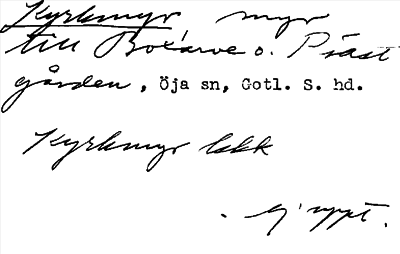 Kyrkmyr myr
till Boxarve o. Präst
gården, Öja sn, Gotl. S. hd.
Kyrkmyr lokk
. ej uppt.